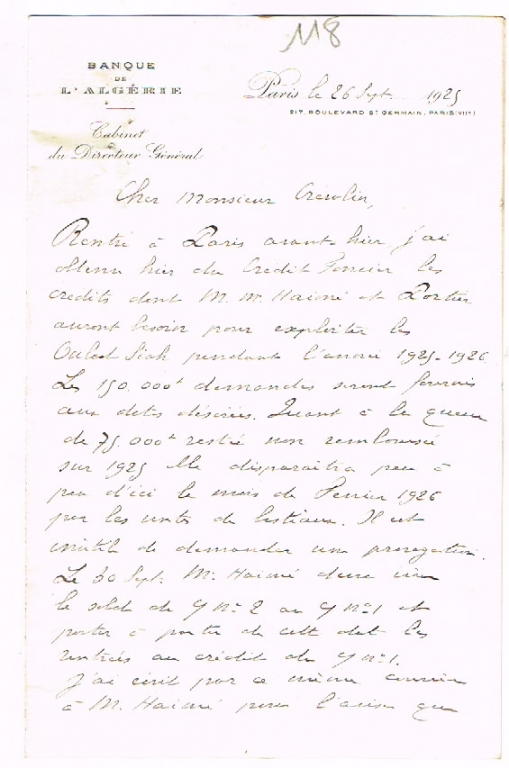 118
BANQUE
DE
L'ALGÉRIE
Cabinet
du Directeur Général
Paris le 26 Sept. 1925
217, BOULEVARD ST GERMAIN, PARIS (VIIe)
Cher Monsieur
Rentré à Paris avant hier, j'ai
obtenu hier du Crédit Foncier les
crédits dont M. M. Haimé et Portier
auront besoin pour exploiter les
Ouled Siah pendant l'année 1925-1926.
Les 150.000f demandés seront fournis
aux dates désirées. Quant à la queue
de 75.000f restée non remboursée
sur 1925 elle disparaîtra peu à
peu d'ici le mois de Février 1926
par les ventes de bestiaux. Il est
inutile de demander une prorogation.
Le 30 Sept. M. Haimé devra
le solde de n° 2 au n° 1 et
porter à partir de cette date les
rentrées au crédit du n° 1.
J'ai écrit par ce même courrier
à M. Haimé pour l'aviser que